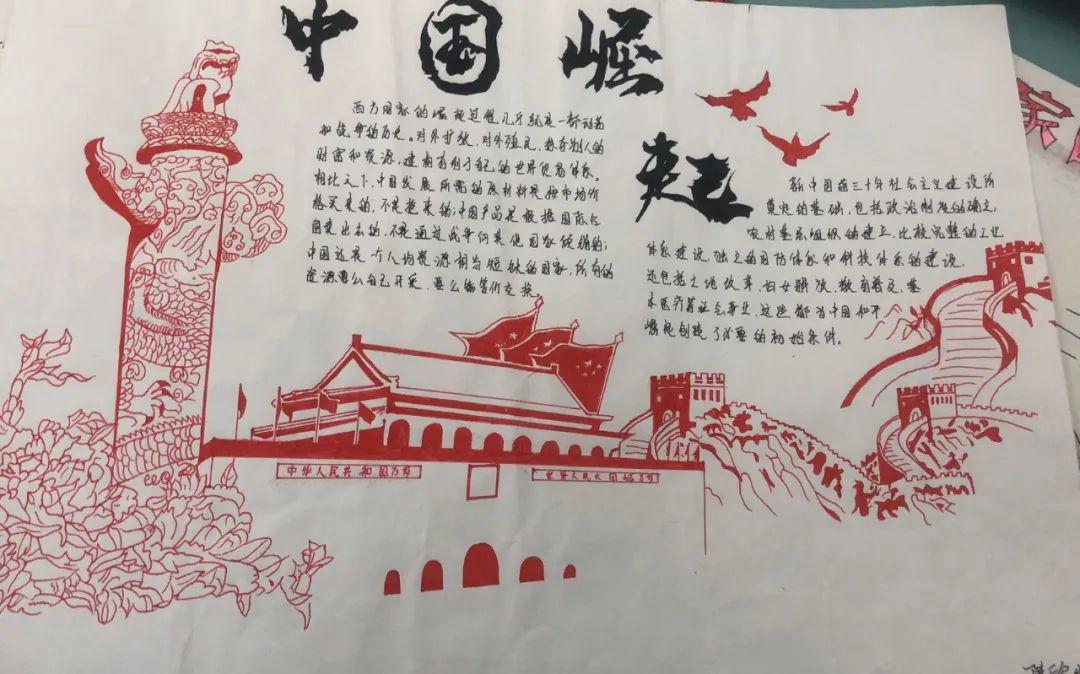 中国崛
起
西方国家的崛起过程几乎就是一部动荡
和战争的历史。对外扩张、对外殖民,掠夺别人的
财富和资源,建构有利于自己的世界贸易体系。
相比之下,中国发展所需的原材料是按市场价
格买来的,不是抢来的;中国产品是根据国际
卖出去的,不是通过战争向其他国家倾销的;
中国还是个人均资源相当短缺的国家,所有的
资源要么自己开采,要么编筐织交换。
新中国前三十年社会主义建设所
奠定的基础,包括政治制度的确立,
农村基层组织的建立,比较完整的工业
体系建设,独立的国防体系和科技体系的建设,
还包括土地改革、妇女解放、教育普及、基
本医疗等社会事业,这些都为中国和平
崛起创造了必要的初始条件。
中华人民共和国万岁
世界人民大团结万岁